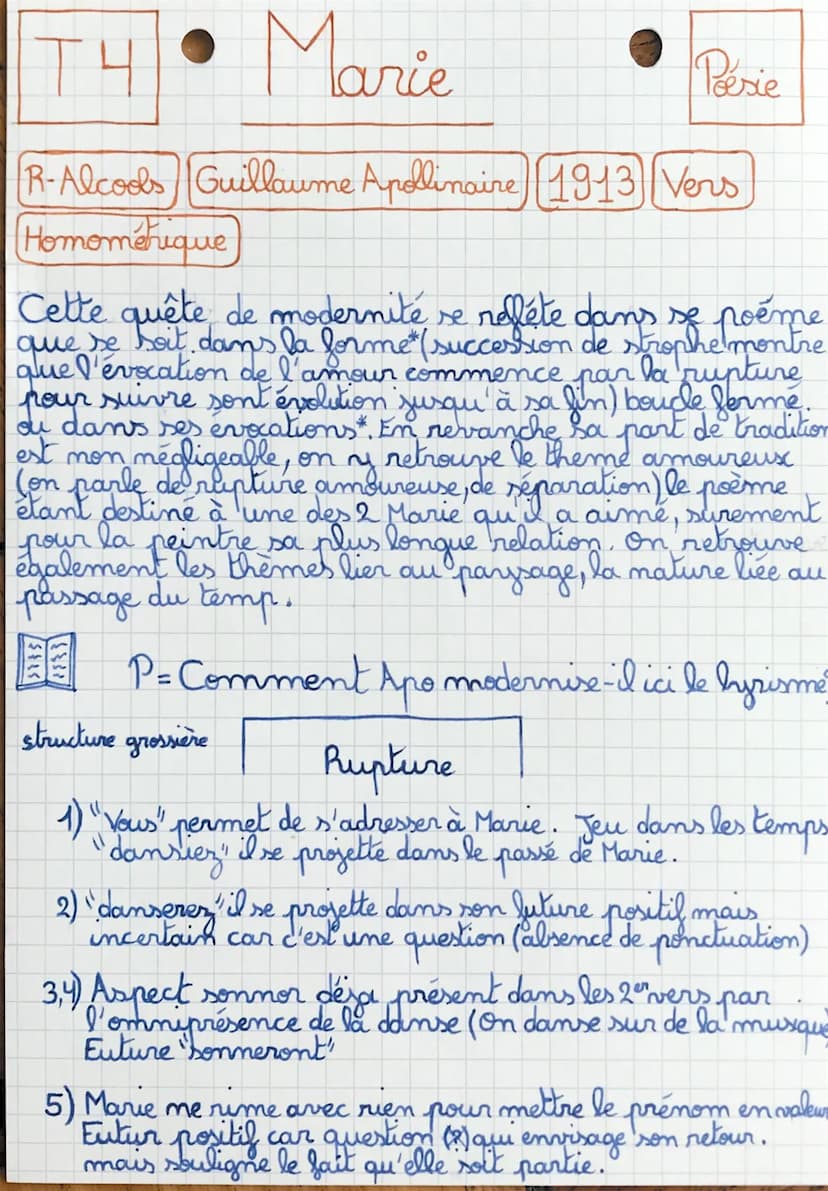 T4
Marie
Poésie
R-Alcools
Guillaume Apollinaire
1913
Vers
Homométrique
Cette quête de modernité se refléte dans se poéme
que se soit dans la forme* (succession de strophe montre
que l'évocation de l'amour commence par la rupture
pour suivre sont évolution jusqu'à sa fin) boucle fermé.
ou dans ses évocations*. En revanche sa part de tradition
est non négligeable, on ny retrouve le theme amoureux
(on parle de rupture amoureuse, de séparation) le poème
étant destiné à une des 2 Marie qu'il a aimé, surement
pour la peintre sa plus longue relation. On retrouve
également les thèmes lier au paysage, la nature liée au
passage du temp.
P= Comment Apo modernise-il ici le lyrisme
structure grossière
Rupture
1) "Vous" permet de s'adresser à Marie. Jeu dans les temps
"dansiez" il se projette dans le passé de Marie.
2) "danserez" il se projette dans son future positif mais
incertain car c'est une question (absence de ponctuation)
3,4) Aspect sonnor déja présent dans les 2er vers par
l'omniprésence de la danse (On danse sur de la musique)
Future "sonneront"
5) Marie ne rime avec rien pour mettre le prénom en valeur
Futur positif car question (?) qui envisage son retour.
mais souligne le fait qu'elle soit partie.